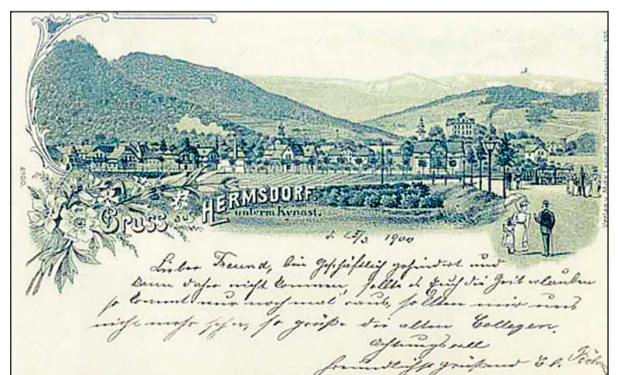 Gruss aus HERMSDORF
unterm Kynast.
1900
Lieber Freund, bin Geschäftlich gehindert und
kann daher nicht kommen, sollte es Euch die Zeit erlauben
so kommt nur nochmal raus, sollten wir uns
nicht mehr sehn, so grüße die alten Collegen.
Achtungsvoll
freundlichst grüßend